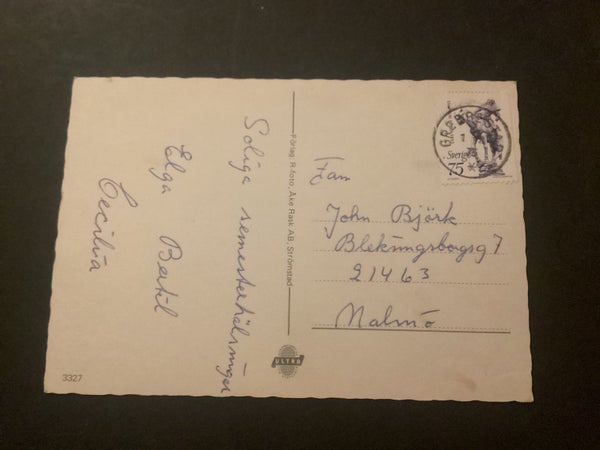 Soliga semesterhälsningar
Elga Bertil
Cecilia
Förlag: R-foto, Åke Rask A.B., Strömstad
Fam
John Björk
Blekingsborgsg 7
21463
Malmö
Sverige
75
ULTRA
3327